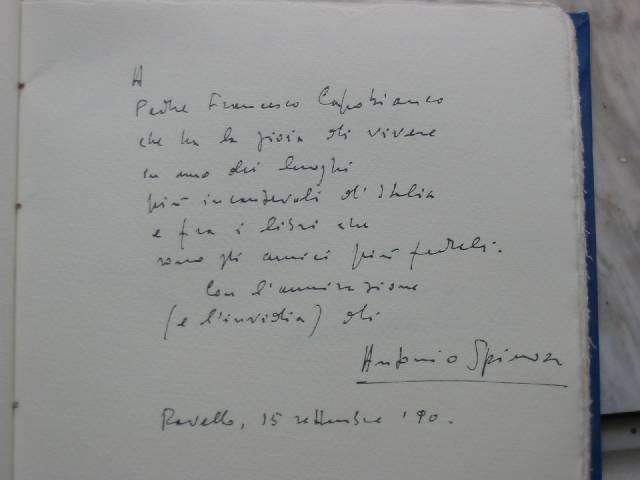 A
Padre Francesco Capobianco
che ha la gioia di vivere
in uno dei luoghi
più incantevoli d'Italia
e fra i libri che
sono gli amici più fedeli.
Con l'ammirazione
(e l'invidia) di
Antonio Spinosa
Ravello, 15 settembre '90.